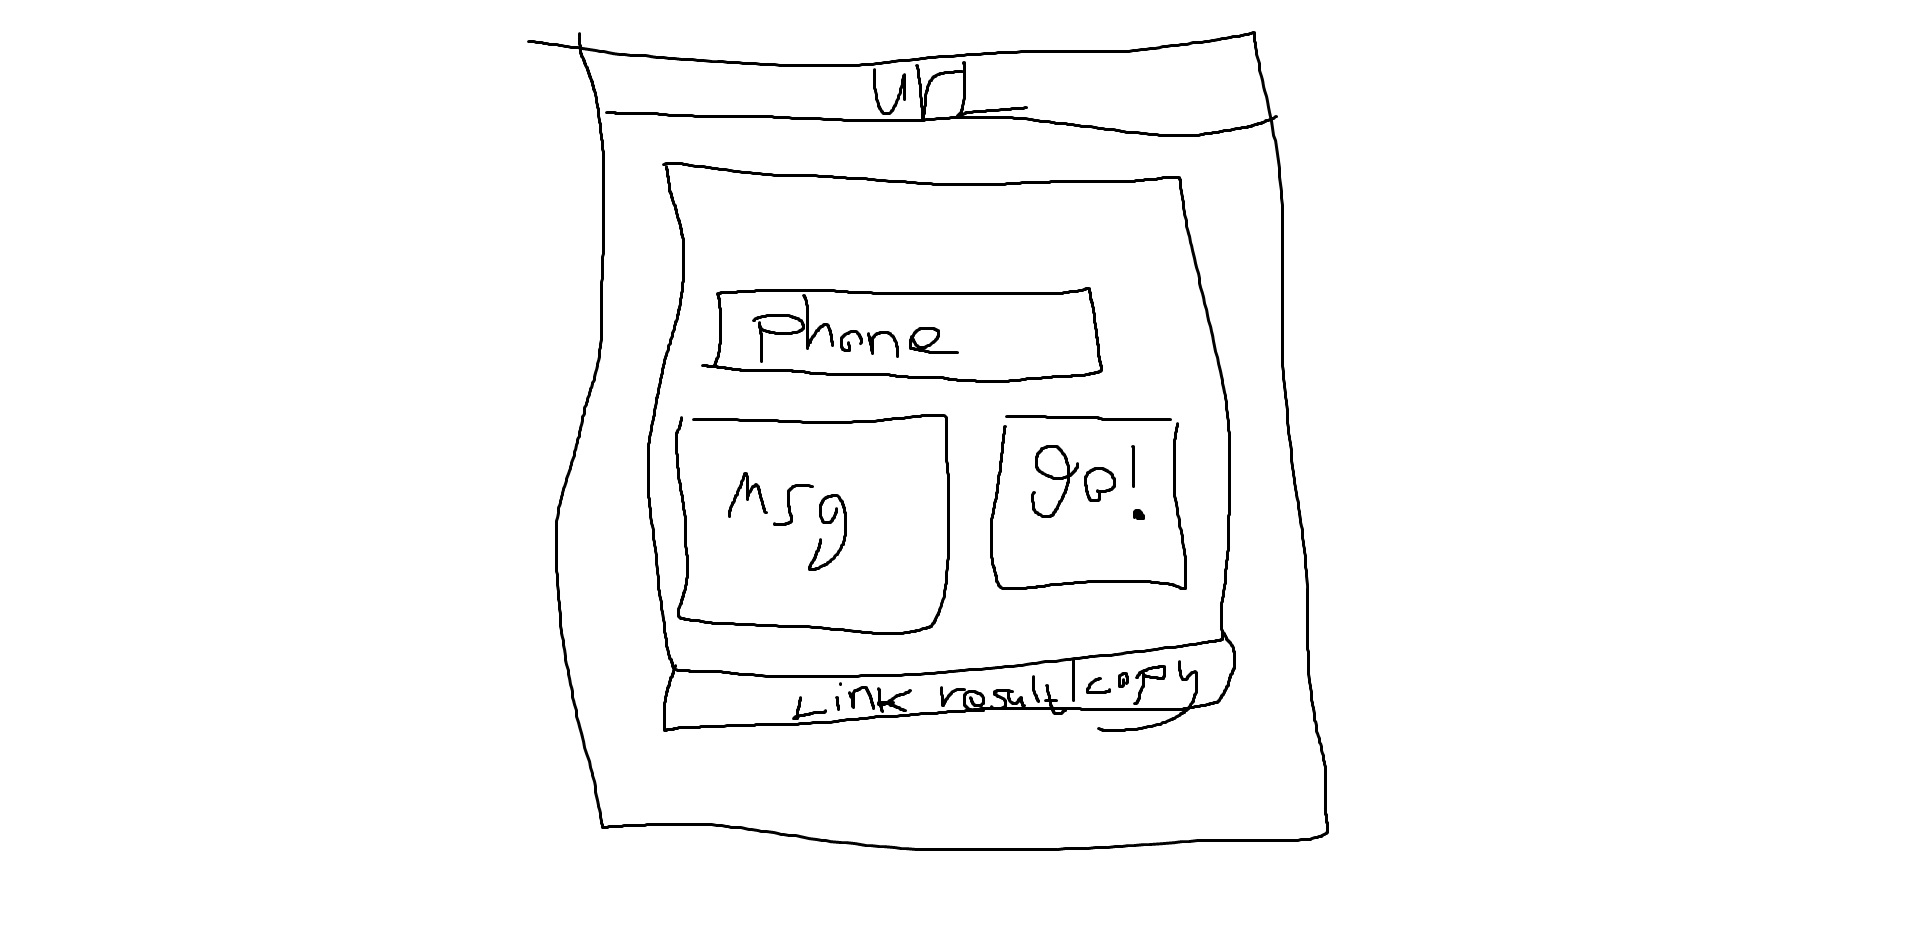 url
phone
msg
go!
Link result
copy